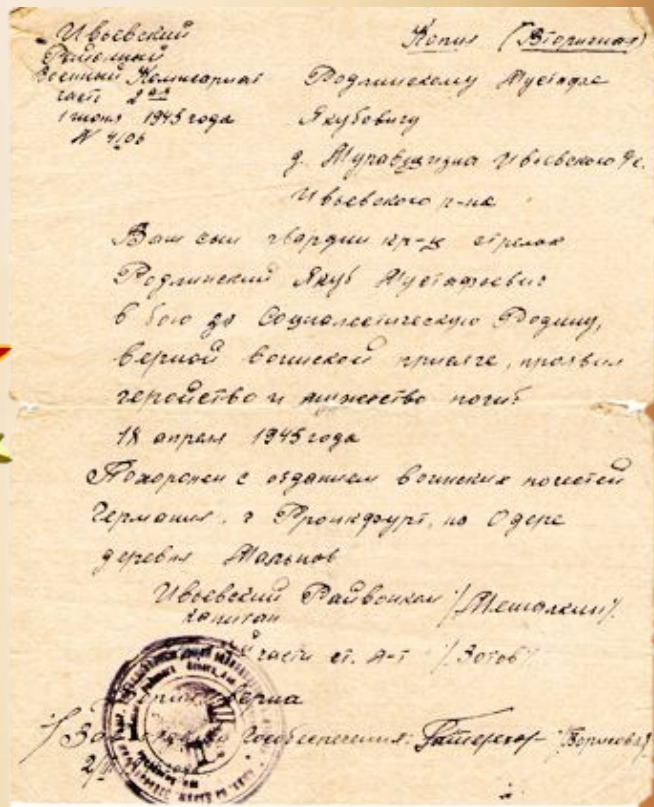 Ивьевский
Районный
Военный Комисариат
часть 2ая
1 июня 1945 года
N 4/06
Копия (Вторичная)
Родлинскому Мустафе
Якубовичу
д. Муравщизна Ивьевского
Ивьевского р-на
Ваш сын гвардии кр-ц стрелок
Родлинский Якуб Мустафович
в бою за Социалистическую Родину,
верной воинской присяге, проявил
геройство и мужество погиб
18 апреля 1945 года
Похоронен с отданием воинских почестей
Германия, г Фронкфурт, на Одере
деревня Мальнов
Ивьевский Райвоенком /Мешалкин/.
капитан
части ст. л-т /Зотов/.
верна
Гособеспечения: /Борисова/.